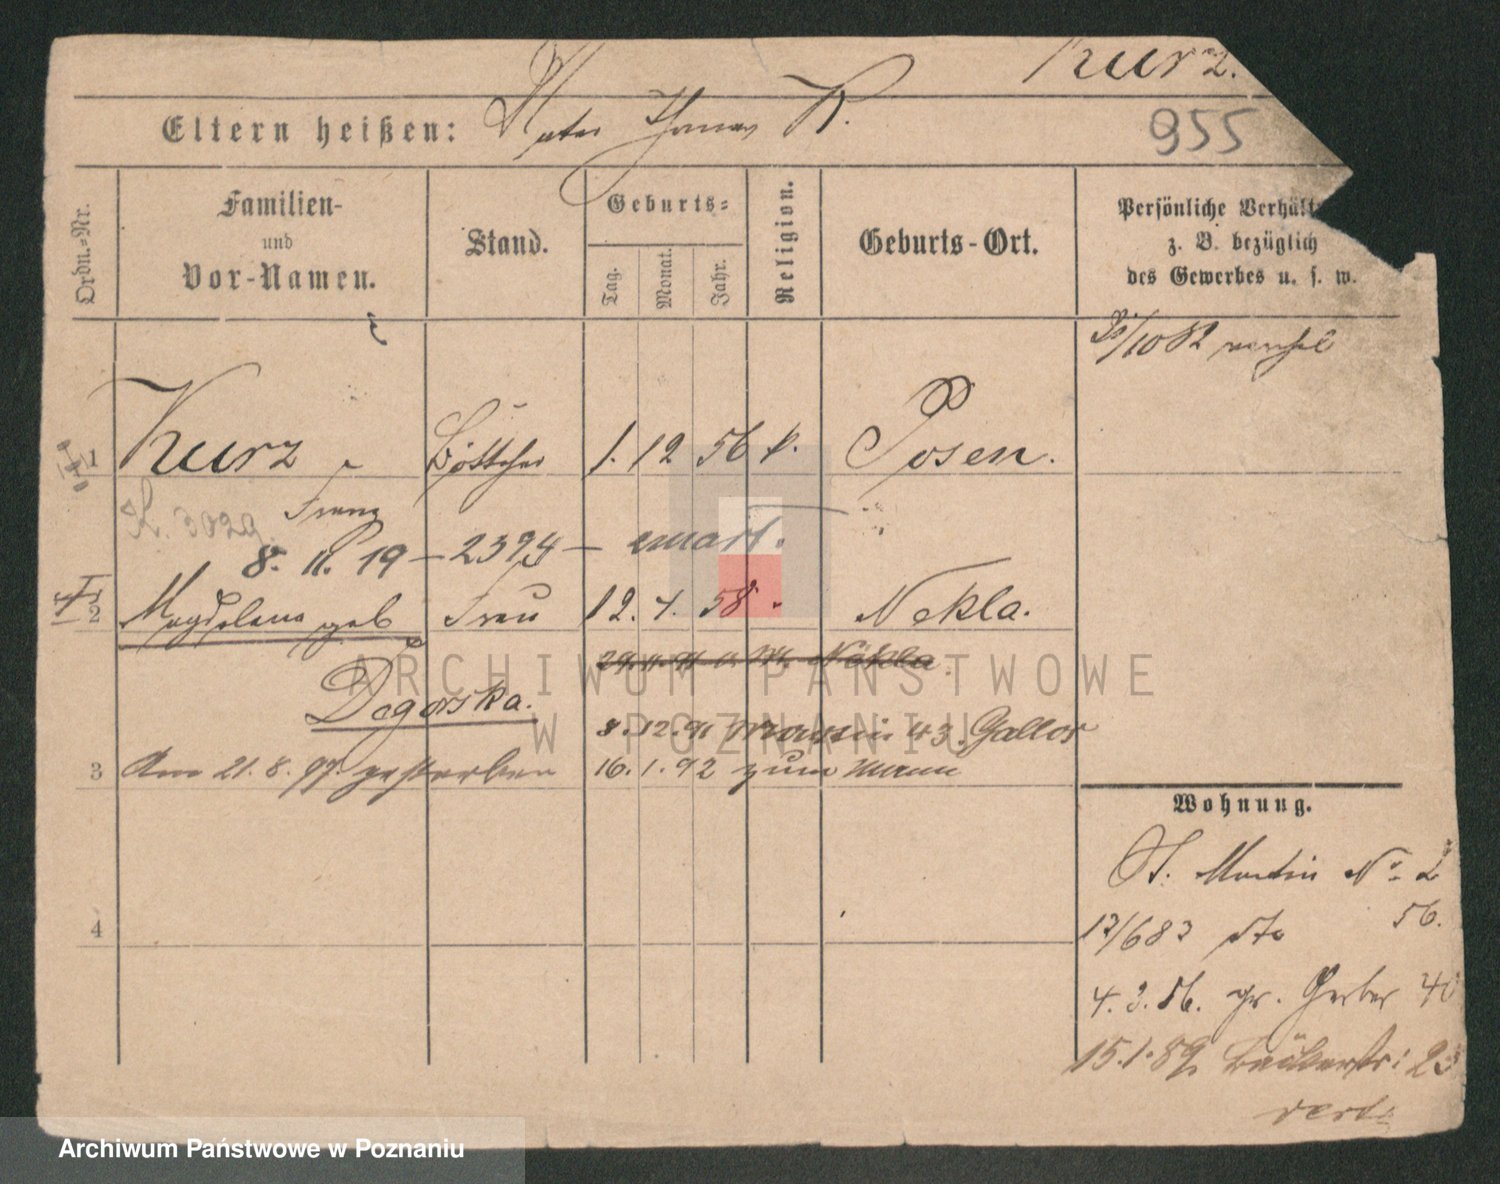 Kurz.
Eltern heißen: Vater Thomas K.
955
Ordn.=Nr.
Familien-
und
Vor-Namen.
Stand.
Geburts=
Tag.
Monat.
Jahr.
Religion.
Geburts-Ort.
Persönliche Verhält
z. B. bezüglich
des Gewerbes u. s. w.
1 Kurz Böttcher 1. 12 56 k. Posen.
Franz
K. 3029
8. 11. 19 - 2394 -
2 Magdalena geb Frau 12. 7. 58 Nekla.
Degorska.
8. 12. 91 43. Gallor
3 Am 21. 8. 97. gestorben 16. 1. 92 zum Mann
4
Wohnung.
St. Martin No 2
56.
4. 3. 86. gr. Gerber 40
15. 1. 89. Bäckerstr: 23
vert.
ARCHIWUM PAŃSTWOWE
W POZNANIU
Archiwum Państwowe w Poznaniu